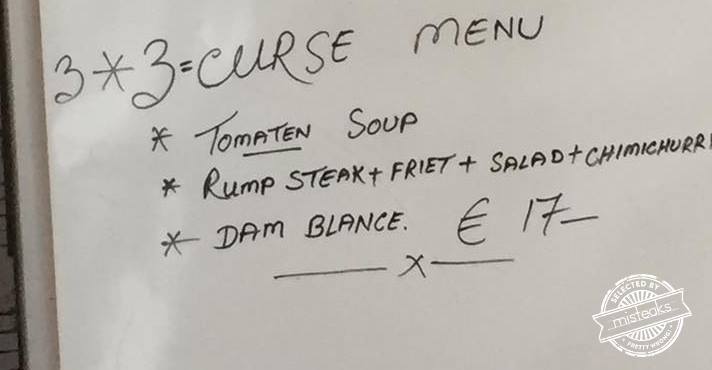 3*3=CURSE MENU
* TOMATEN SOUP
* RUMP STEAK + FRIET + SALAD + CHIMICHURRI
* DAM BLANCE. € 17—
—x—
SELECTED BY
misteaks
PRETTY WRONG!